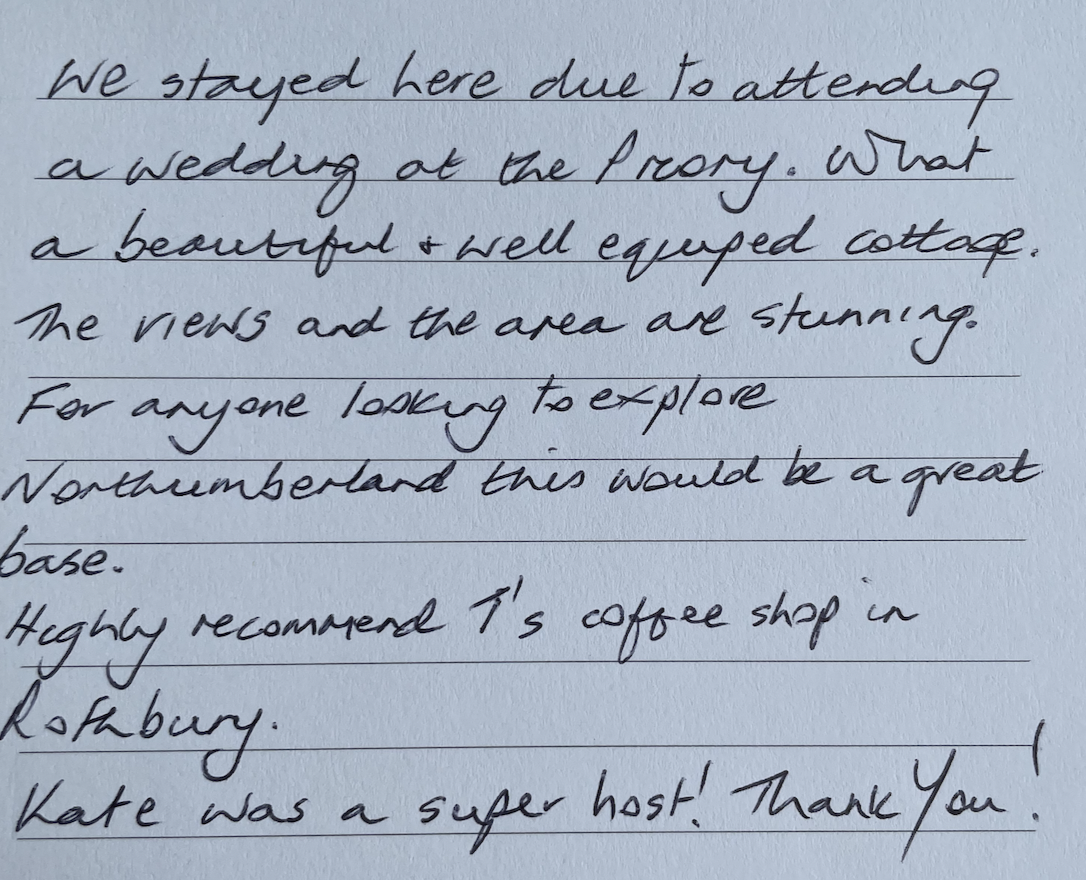 We stayed here due to attending
a wedding at the Priory. What
a beautiful + well equiped cottage.
The views and the area are stunning.
For anyone looking to explore
Northumberland this would be a great
base.
Highly recommend T's coffee shop in
Rothbury.
Kate was a super host! Thank You!